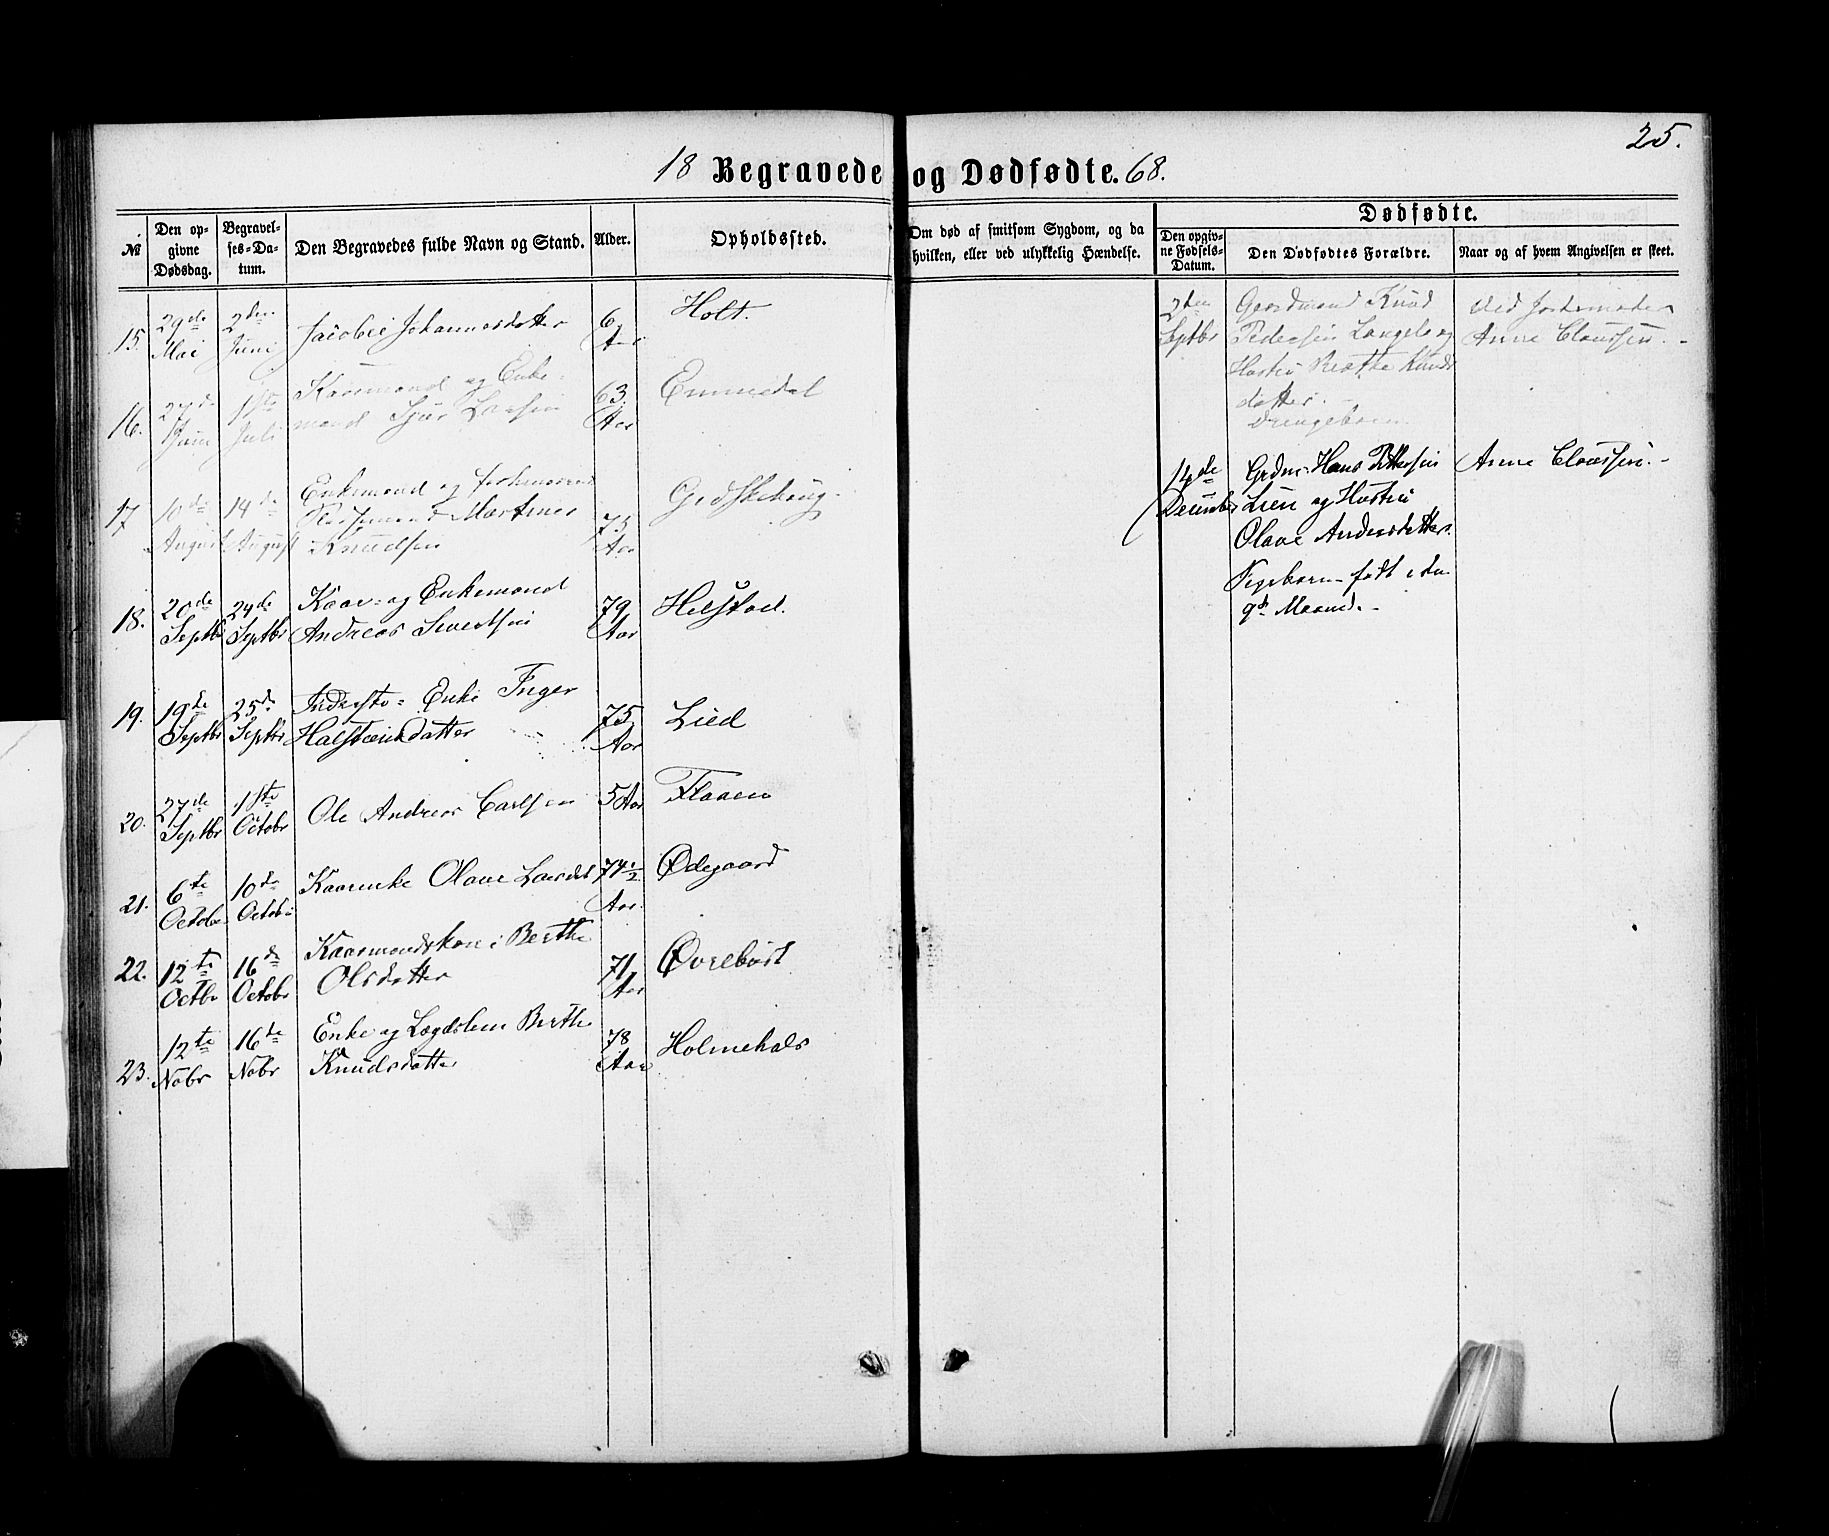 25.
18 Begravede og Dødfødte. 68.
№
Den opgivne Dødsdag.
Begravelses-Datum.
Den Begravedes fulde Navn og Stand.
Alder.
Opholdssted.
Om død af smitsom Sygdom, og da hvilken, eller ved ulykkelig Hændelse.
Dødfødte.
Den opgivne Fødsels-Datum.
Den Dødfødtes Forældre.
Naar og af hvem Angivelsen er skeet.
15. 29de Mai 2den Juni Jacobei Johannesdatter 6 Aar Holt.
16. 27de Juni 1ste Juli Kaarmand og Enkemand Sjur Larsen 63 Aar Emmedal
17 10de August 14de August Enkemand og Martinus Knudsen 75 Aar
18. 20de Septbr 24de Septbr Kaar- og Enkemand Andreas Sivertsen 79 Aar Helstad.
19. 19de Septbr 25de Septbr Inderste- Enke Inger Halsteinsdatter 75 Aar Lied
20. 27de Septbr 1ste Octobr Ole Andreas Carlsen 5 Aar Flaaen
21. 6te Octobr 10de Octobr Kaarenke Olave Larsdt 74 1/2 Aar. Ødegaard
22. 12te Octbr 16de Octobr Kaarmandskone Berthe Olsdatter 71 Aar Øvrebust
23. 12te Nobr 16de Nobr Enke og Lægdslem Berthe Knudsdatter 78 Aar Holmehals
2den Septbr
Gaardmand Knud
Pedersen Langelo og
Hustru Berthe Knuds
datter.
Drengebarn
Ved Jordemoder
Anne Claussen. -
14de December
Grdm. Hans Pettersen
Lien og Hustru
Olave Andersdatter.
Pigebarn - født i den
9de Maaned. -
Anne Claussen. -